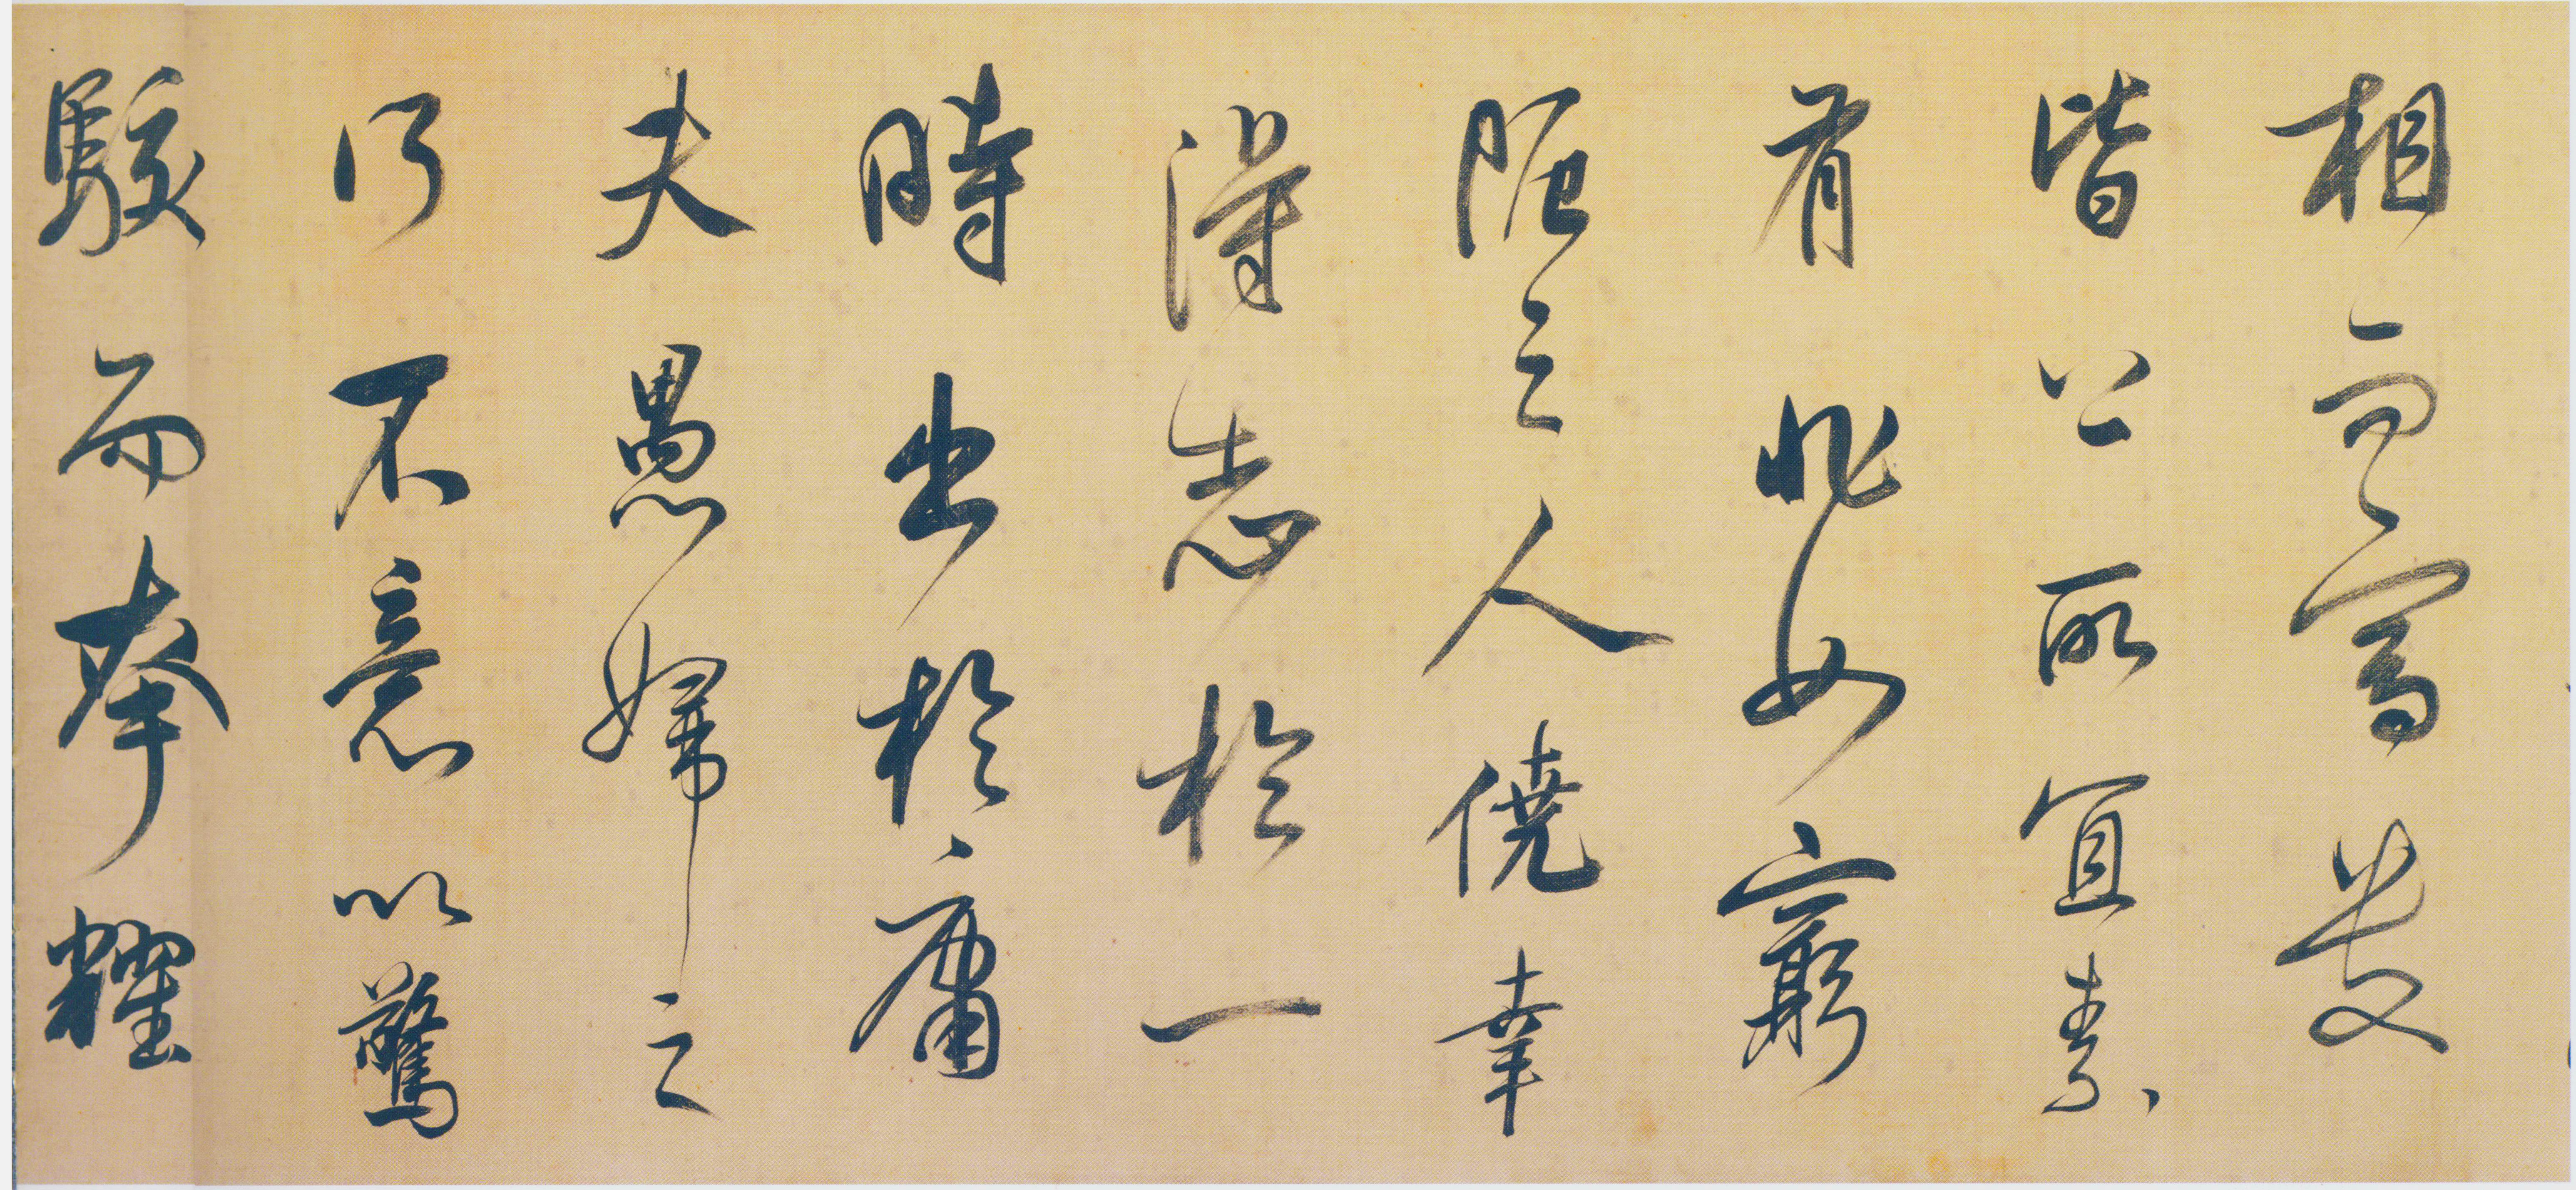 相而富貴
皆公所宜素
有非如窮
阨之人僥幸
得志於一
時出於庸
夫愚婦之
所不意以驚
駭而夸耀